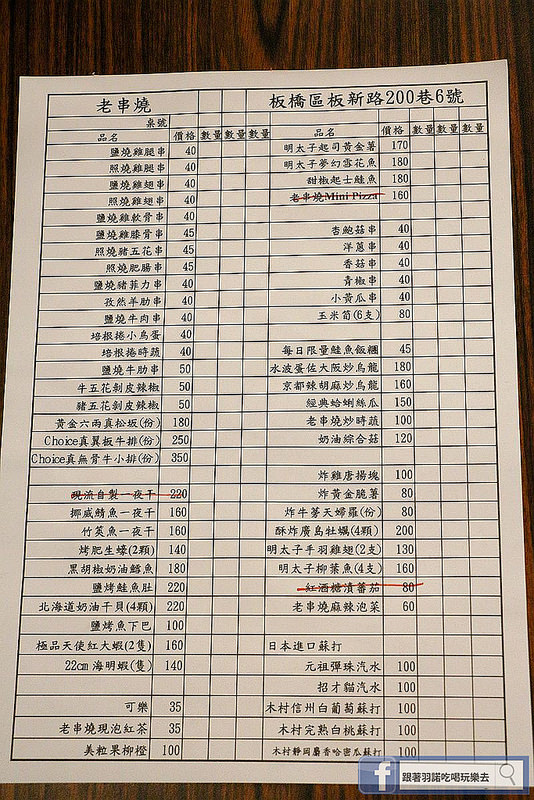 老串燒
桌號
品名 價格 數量 數量 數量
鹽燒雞腿串 40
照燒雞腿串 40
鹽燒雞翅串 40
照燒雞翅串 40
鹽燒雞軟骨串 40
鹽燒雞膝骨串 45
照燒豬五花串 45
照燒肥腸串 45
鹽燒豬菲力串 40
孜然羊肋串 40
鹽燒牛肉串 40
培根捲小鳥蛋 40
培根捲時蔬 40
鹽燒牛肋串 50
牛五花剝皮辣椒 50
豬五花剝皮辣椒 50
黃金六兩真松坂(份) 180
Choice真翼板牛排(份) 250
Choice真無骨牛小排(份) 350
現流自製一夜干 220
挪威鯖魚一夜干 160
竹筴魚一夜干 160
烤肥生蠔(2顆) 140
黑胡椒奶油鱈魚 180
鹽烤鮭魚肚 220
北海道奶油干貝(4顆) 220
鹽烤魚下巴 100
極品天使紅大蝦(2隻) 160
22cm海明蝦(隻) 140
可樂 35
老串燒現泡紅茶 35
美粒果柳橙 100
板橋區板新路200巷6號
品名 價格 數量 數量 數量
明太子起司黃金薯 170
明太子夢幻雪花魚 180
甜椒起士鮭魚 180
老串燒Mini Pizza 160
杏鮑菇串 40
洋蔥串 40
香菇串 40
青椒串 40
小黃瓜串 40
玉米筍(6支) 80
每日限量鮭魚飯糰 45
水波蛋佐大阪炒烏龍 180
京都辣胡麻炒烏龍 160
經典蛤蜊絲瓜 150
老串燒炒時蔬 100
奶油綜合菇 120
炸雞唐揚塊 100
炸黃金脆薯 80
炸牛蒡天婦羅(份) 80
酥炸廣島牡蠣(4顆) 200
明太子手羽雞翅(2支) 130
明太子柳葉魚(4支) 160
紅酒糖漬蕃茄 80
老串燒麻辣泡菜 60
日本進口蘇打
元祖彈珠汽水 100
招才貓汽水 100
木村信州白葡萄蘇打 100
木村完熟白桃蘇打 100
木村靜岡麝香哈密瓜蘇打 100
f 跟著羽諾吃喝玩樂去